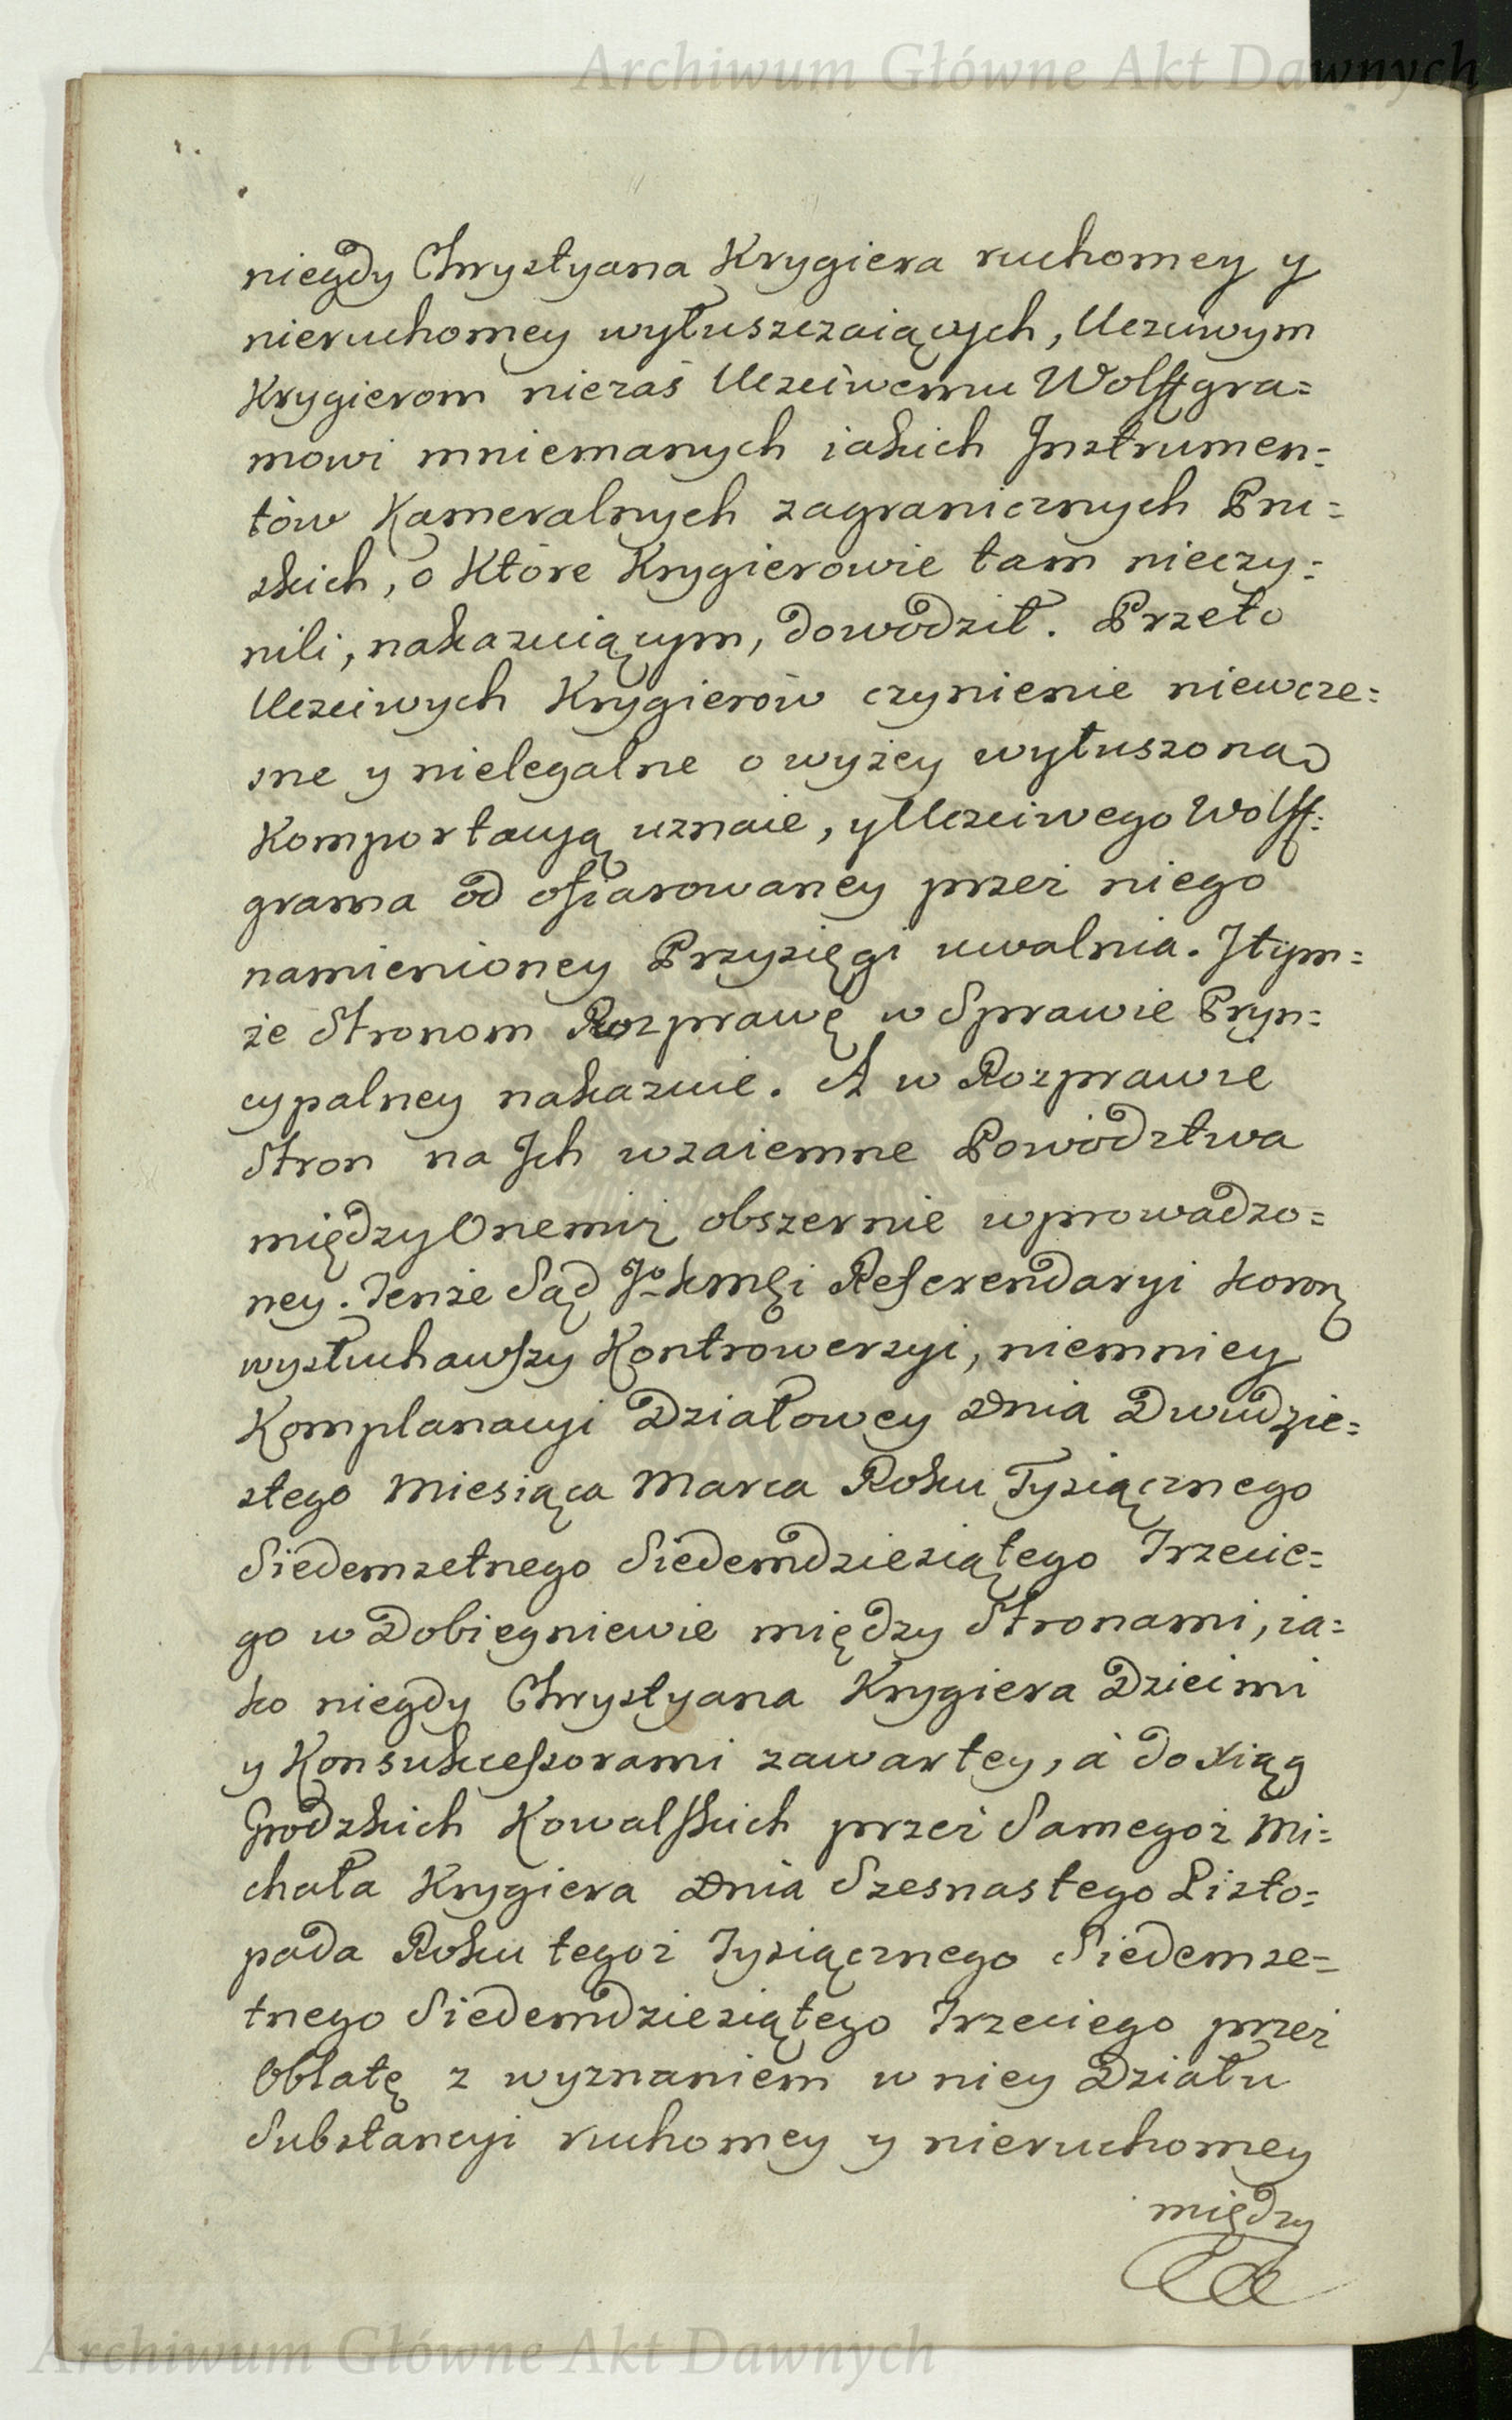 Archiwum Główne Akt Dawnych
niegdy Chrystyana Krygiera ruchomey y
nieruchomey wytuszczaiących, Uczciwym
Krygierom niezaś Uczciwemu Wolffgra=
mowi mniemanych iakich Instrumen=
tów Kameralnych zagranicznych Pru=
skich, o które Krygierowie tam nieczy=
nili, nakazuiącym, dowodził. Przeto
Uczciwych Krygierów czynienie niewcze=
sne y nielegalne o wyżey wytuszoną
Komportacyą uznaie, y Uczciwego Wolff=
grama od ofiarowaney przez niego
namienioney Przysięgi uwalnia. Itym=
że Stronom Rozprawę w Sprawie Pryn=
cypalney nakazuie. A w Rozprawie
Stron na Ich wzaiemne Powództwa
między Onemiż obszernie wprowadzo=
ney. Tenże Sąd Jo Kmći Referendaryi Koronę
wysłuchawszy Kontrowersyi, niemniey
Komplanacyi Działowey Dnia Dwudzie=
stego Miesiąca Marca Roku Tysiącznego
Siedemsetnego Siedemdziesiątego Trzecie=
go w Dobiegniewie między Stronami, ia=
ko niegdy Chrystyana Krygiera Dziećmi
y Konsukcessorami zawartey, à do Xiąg
Grodzkich Kowalskich przez Samegoż Mi=
chała Krygiera Dnia Szesnastego Listo=
pada Roku tegoż Tysiącznego Siedemse=
tnego Siedemdziesiątego Trzeciego przez
Oblatę z wyznaniem w niey Działu
Substancyi ruchomey y nieruchomey
między
Archiwum Główne Akt Dawnych